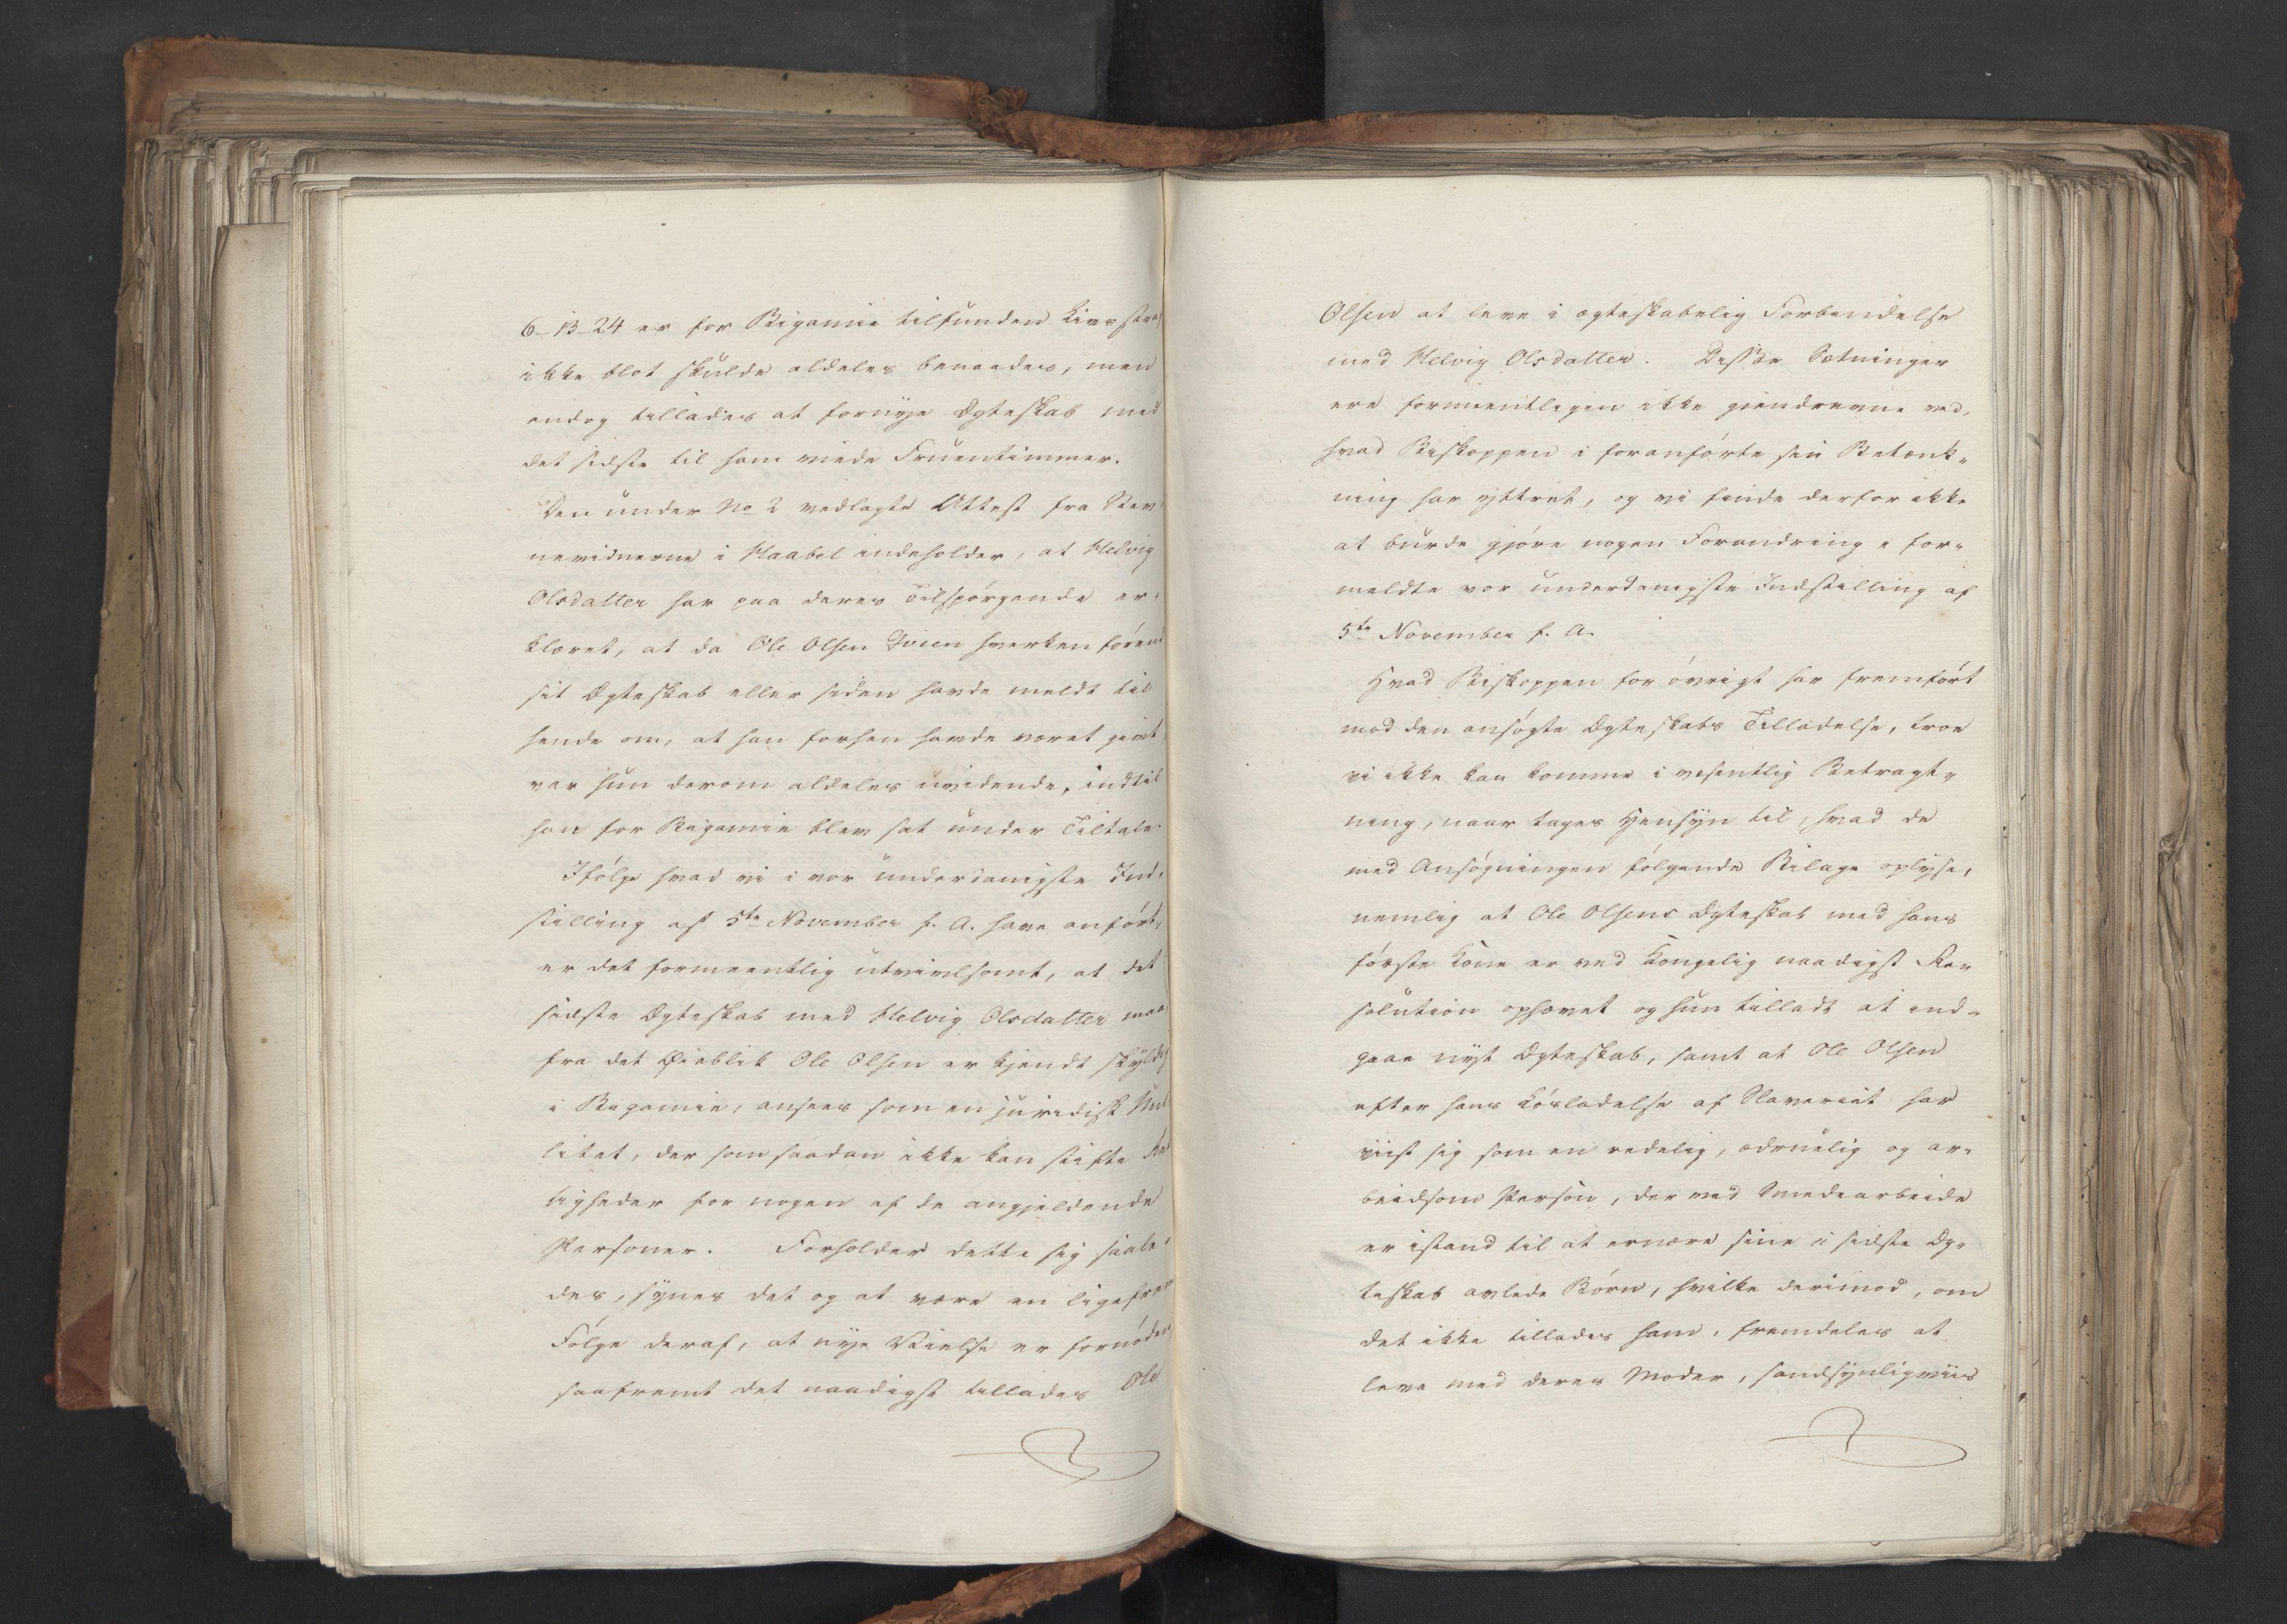 6-13-24 er for Bigamie tilfunden Livsstraf
ikke blot skulde aldeles benaades, men
endog tillades at fornye Ægteskab med
det sidste til ham viede Fruentimmer.
Den under No 2 vedlagte Attest fra Stev-
nevidnerne i Haabøl indeholder, at Helvig
Olsdatter har paa deres Tilspørgende er-
klæret, at da Ole Olsen hverken førend
sit Ægteskab eller siden havde meldt til
hende om, at han forhen havde været givt,
var hun derom aldeles uvidende, indtil
han for Bigamie blev sat under Tiltale.
Ifølge hvad vi i vor underdanigste Ind-
stilling af 5te November f. A. have anført,
er det formeentlig utvivlsomt, at det
sidste Ægteskab med Helvig Olsdatter maa,
fra det Øieblik Ole Olsen er kjendt skyldig
i Bigamie, ansees som en juridisk Nul-
litet, der som saadan ikke kan stifte Ret-
tigheder for nogen af de angjeldende
Personer. Forholder dette sig saale-
des, synes det og at være en ligefrem
Følge deraf, at nye Vielse er fornøden
saafremt det naadigst tillades Ole
Olsen at leve i ægteskabelig Forbindelse
med Helvig Olsdatter. Disse Sætninger
ere formeentligen ikke gjendrevne ved,
hvad Biskoppen i foranførte sin Betænk-
ning har yttret, og vi finde derfor ikke
at burde gjøre nogen Forandring i for-
meldte vor underdanigste Indstilling af
5te November f. A.
Hvad Biskoppen for øvrigt har fremført
mod den ansøgte Ægteskabs Tilladelse, troe
vi ikke kan komme i vesentlig Betragt-
ning, naar tages Hensyn til, hvad de
med Ansøgningen følgende Bilage oplyse,
nemlig at Ole Olsens Ægteskab med hans
første Kone er ved Kongelig naadigst Re-
solution ophævet og hun tilladt at ind-
gaae nyt Ægteskab, samt at Ole Olsen
efter hans Løsladelse af Slaveriet har
viist sig som en redelig, ædruelig og ar-
beidsom Person, der ved Smedearbeide
er istand til at ernære sine i sidste Æg-
teskab avlede Børn, hvilke derimod, om
det ikke tillades ham, fremdeles at
leve med deres Moder, sandsynligviis